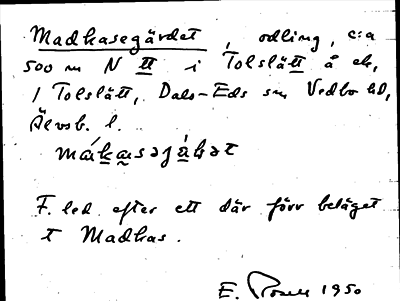 Madkasegärdet, odling, c:a
500 m N tt i Tolslätt å ek,
1 Tolslätt, Dals-Eds sn Vedbo hd,
Älvsb. l.
F. led efter ett där förr beläget
t Madkas.
E. 1950